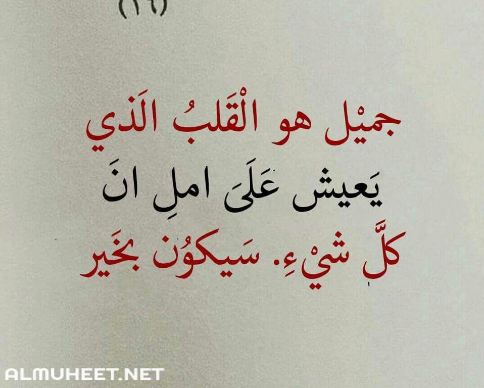 (١٦)
جميْل هو الْقَلبُ الَذي
يَعيش عَلَىَ املِ انَ
كلَّ شيْءِ. سَيكوُن بخَير
ALMUHEET.NET